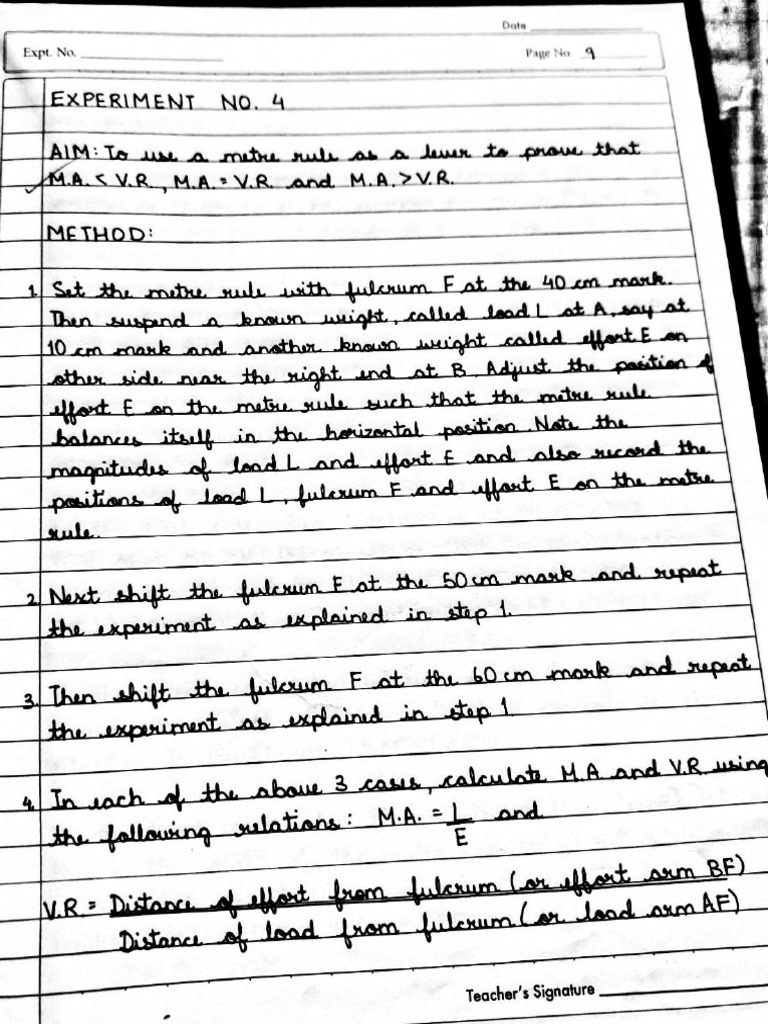 Date
Expt. No.
Page No. 9
EXPERIMENT NO. 4
AIM: To use a metre rule as a lever to prove that
M.A. < V.R., M.A. = V.R. and M.A. > V.R.
METHOD:
1. Set the metre rule with fulcrum F at the 40 cm mark.
Then suspend a known weight, called load L at A, say at
10 cm mark and another known weight called effort E on
other side near the right end at B. Adjust the position of
effort E on the metre rule such that the metre rule
balances itself in the horizontal position. Note the
magnitudes of load L and effort E and also record the
positions of load L, fulcrum F and effort E on the metre
rule.
2. Next shift the fulcrum F at the 50 cm mark and repeat
the experiment as explained in step 1.
3. Then shift the fulcrum F at the 60 cm mark and repeat
the experiment as explained in step 1.
4. In each of the above 3 cases, calculate M.A. and V.R. using
the following relations: M.A. = L/E and
V.R. = Distance of effort from fulcrum (or effort arm BF)
Distance of load from fulcrum (or load arm AF)
Teacher's Signature